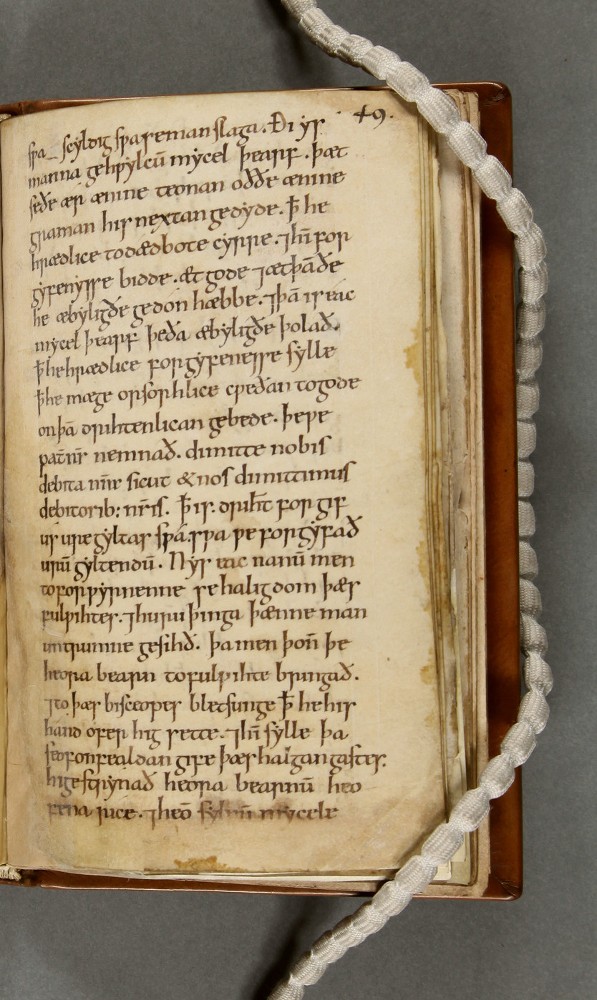 49.
spa scyldig spa se man slaga. Ði ys
manna gehpylcū mycel þearf. þæt
seðe ær ænine teonan oððe ænine
graman his nextan gedyde. ꝥ he
hrædlice to dædbote cyrre. ⁊ hī for
gyfenysse bidde. æt gode ⁊ æt þā ðe
he æbyligðe gedon hæbbe. ⁊ þā is eac
mycel þearf þe ða æbyligðe þolað.
ꝥ he hrædlice forgyfenesse sylle
ꝥ he mæge orsorhlice cpeðan to gode
on þā drihtenlican gebede. þe pe
pat̄ nr̄ nemnað. dimitte nobis
debita nr̄a sicut & nos dimittimus
debitorib: nr̄is. ꝥ is. driht̄ forgif
us ure gyltas spa. spa pe forgyfað
urū gyltendū. Nys eac nanū men
to forpyrnenne se haligdom þær
fulpihtes. ⁊ huru þinga þænne man
untrumne gesihð. þa men þoñ þe
heora bearn to fulpihte bringað.
⁊ to þæs bisceopes bletsunge ꝥ he his
hand ofer hig sette. ⁊ hī sylle þa
seofonfealdan gife þæs halgan gastes.
hig estrynað heora bearnū heo
fena rice. ⁊ heō sylfum mycele